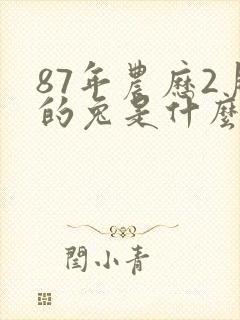 87年農歷2月
的兔是什麼
閆小青